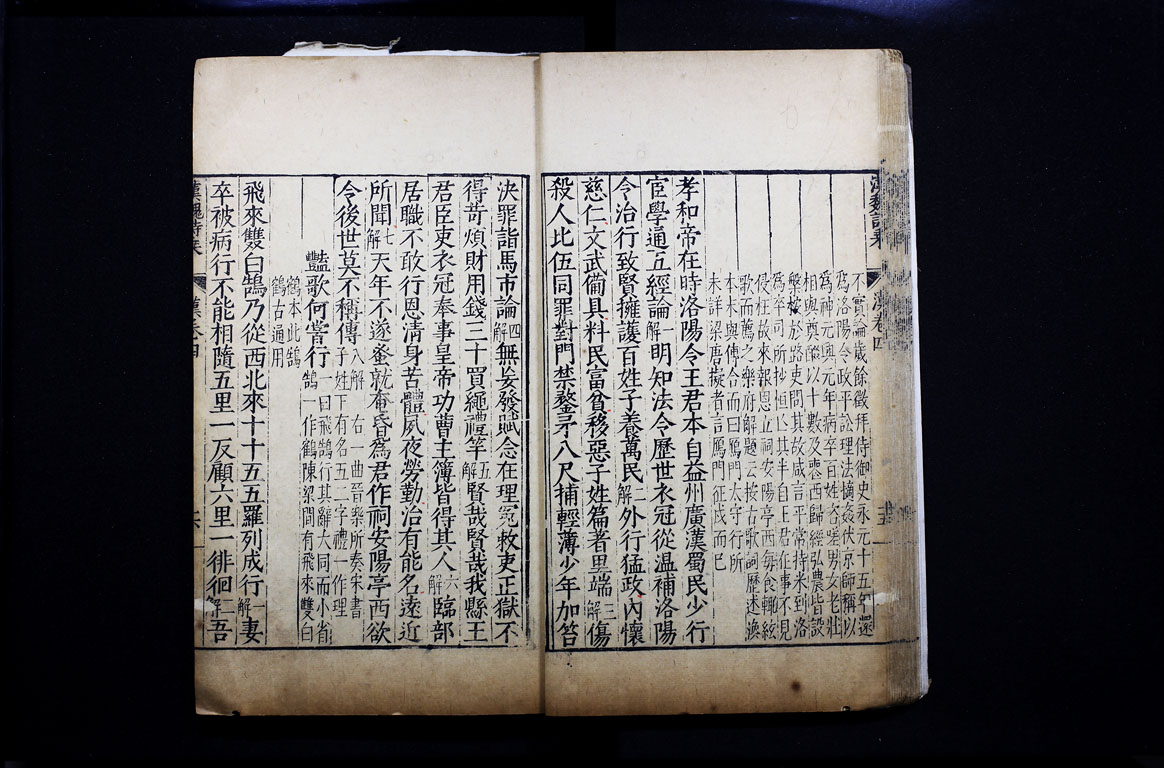 漢魏詩乘
漢卷四
不實論歲餘徵拜侍御史永元十五年還
為洛陽令政平訟理法摘姦伏京師稱以
為神元興元年病卒百姓咨嗟男女老壯
相與奠醊以十數及喪西歸經弘農皆設
槃桉於路吏問其故咸言平常持米到洛
為卒司所抄恒亡其半自王君在事不見
侵枉故來報恩立祠安陽亭西每食輒絃
歌而薦之樂府解題云按古歌詞歷述渙
本末與傳合而曰鴈門太守行所
未詳梁唐擬者言鴈門征戍而已
孝和帝在時洛陽令王君本自益州廣漢蜀民少行
宦學通五經論一解明知法令歷世衣冠從溫補洛陽
令治行致賢擁護百姓子養萬民二解外行猛政內懷
慈仁文武備具料民富貧移惡子姓篇著里端三解傷
殺人比伍同罪對門禁鏊矛八尺捕輕薄少年加笞
決罪詣馬市論四解無妄發賦念在理冤敕吏正獄不
得苛煩財用錢三十買繩禮竿五解賢哉賢哉我縣王
君臣吏衣冠奉事皇帝功曹主簿皆得其人六解臨部
居職不敢行恩清身苦體夙夜勞勤治有能名遠近
所聞七解天年不遂蚤就奄昏為君作祠安陽亭西欲
令後世莫不稱傳八解 右一曲晉樂所奏宋書
子姓下有名五二字禮一作理
豔歌何嘗行一曰飛鵠行其辭大同而小省
鵠一作鶴陳梁間有飛來雙白
鶴本此鵠
鶴古通用
飛來雙白鵠乃從西北來十十五五羅列成行一解妻
卒被病行不能相隨五里一反顧六里一徘徊二解吾
漢魏詩乘
漢卷四